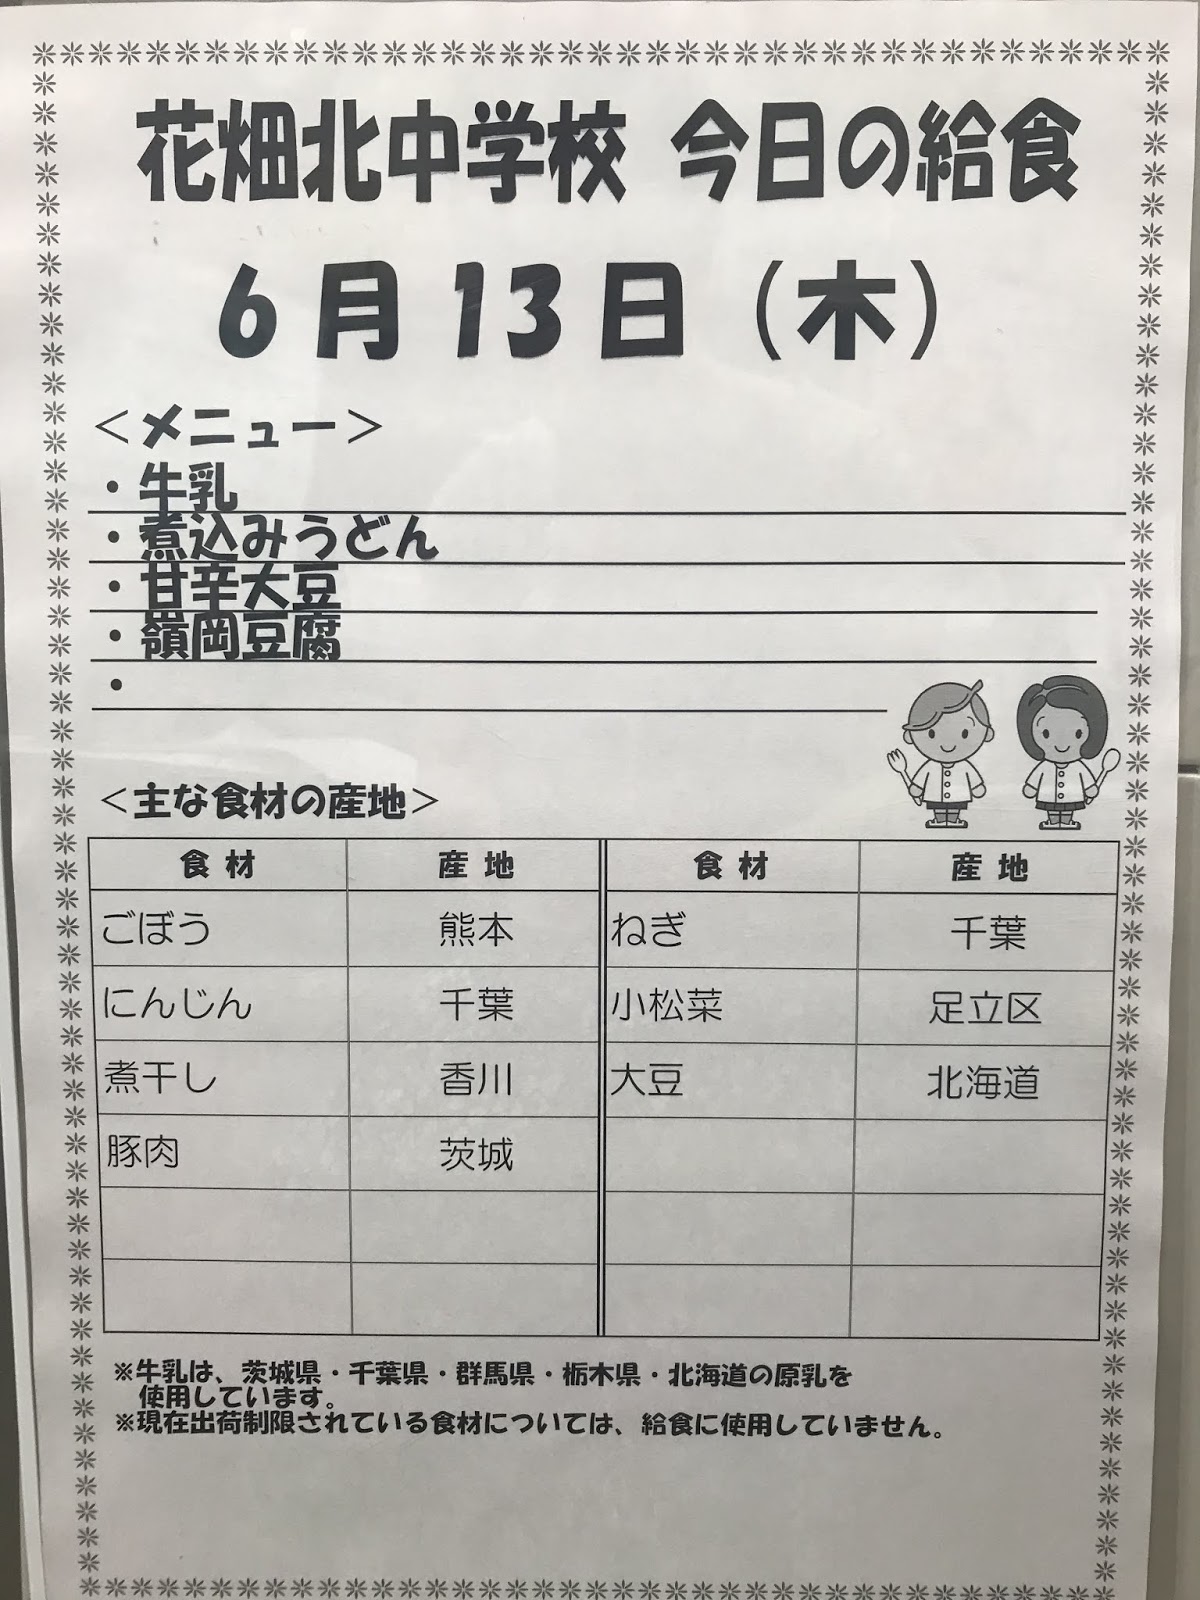 花畑北中学校 今日の給食
6月13日（木）
＜メニュー＞
・牛乳
・煮込みうどん
・甘辛大豆
・嶺岡豆腐
・
＜主な食材の産地＞
食材 産地 食材 産地
ごぼう 熊本 ねぎ 千葉
にんじん 千葉 小松菜 足立区
煮干し 香川 大豆 北海道
豚肉 茨城
※牛乳は、茨城県・千葉県・群馬県・栃木県・北海道の原乳を
使用しています。
※現在出荷制限されている食材については、給食に使用していません。